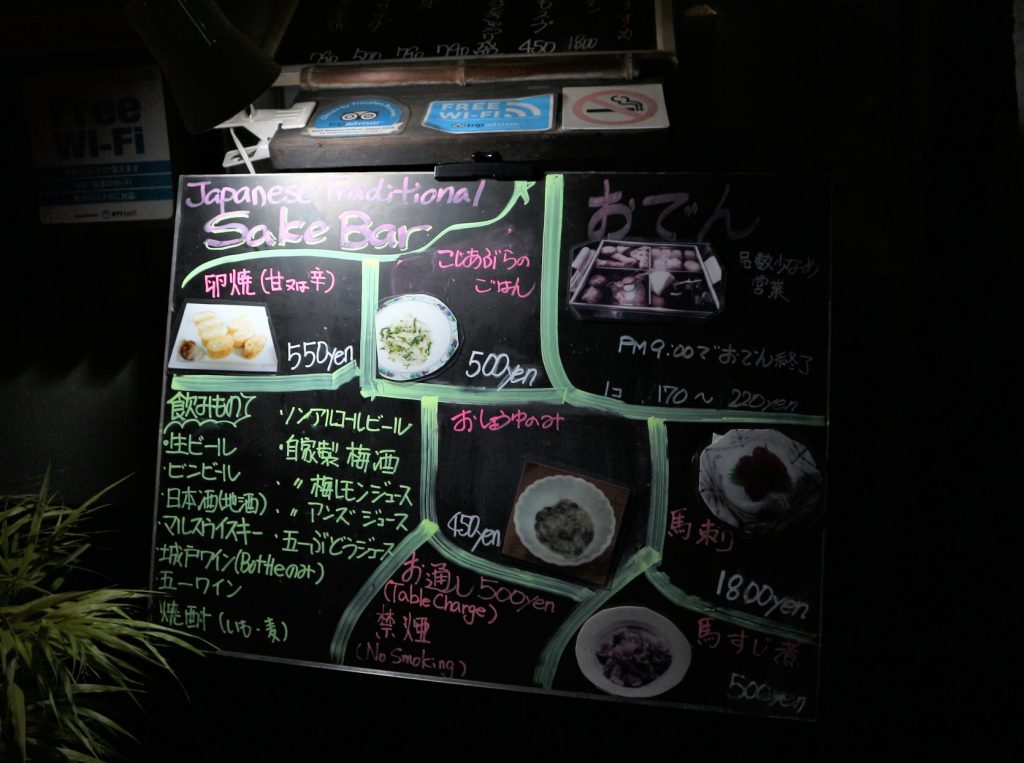 790 500 790 790 450 1800
Free
Wi-Fi
tripadvisor
FREE
WI-FI
tripadvisor
Japanese Traditional
Sake Bar
卵焼(甘又は辛)
550yen
こしあぶらの
ごはん
500yen
おでん
品数少なめ
営業
PM9:00でおでん終了
1コ 170〜220yen
飲みもの
・生ビール
・ビンビール
・日本酒(地酒)
・マルスウイスキー
・城戸ワイン(Bottleのみ)
・五一ワイン
・焼酎(いも・麦)
・ノンアルコールビール
・自家製 梅酒
・〃 梅レモンジュース
・〃 アンズジュース
・五一ぶどうジュース
おしょうゆのみ
450yen
馬刺
1800yen
お通し500yen
(Table Charge)
禁煙
(No Smoking)
馬すじ煮
500yen